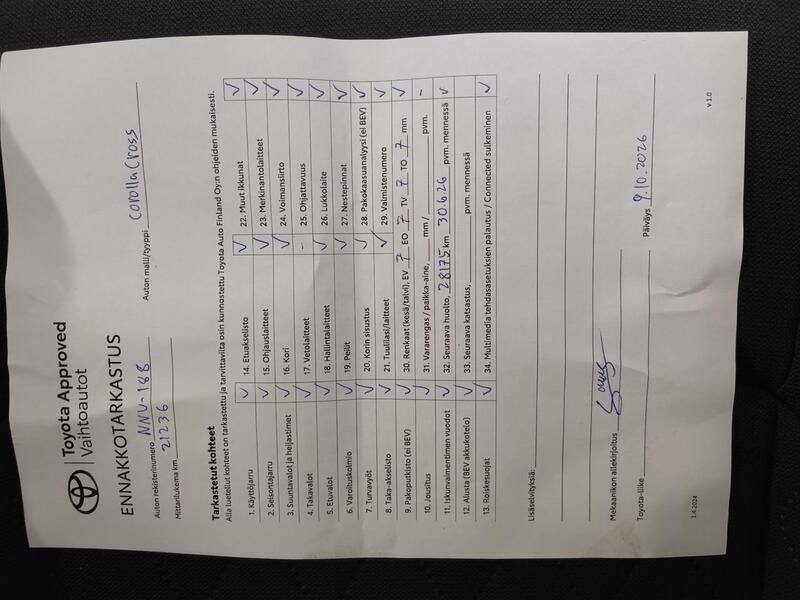 Toyota Approved
Vaihtoautot
ENNAKKOTARKASTUS
Auton rekisterinumero NNU-188 Auton malli/tyyppi Corolla Cross
Mittarilukema km 21236
Tarkastetut kohteet
Alla luetellut kohteet on tarkastettu ja tarvittavilta osin kunnostettu Toyota Auto Finland Oy:n ohjeiden mukaisesti.
1. Käyttöjarru ✓ 14. Etuakselisto ✓ 22. Muut ikkunat ✓
2. Seisontajarru ✓ 15. Ohjauslaitteet ✓ 23. Merkinantolaitteet ✓
3. Suuntavalot ja heijastimet ✓ 16. Kori ✓ 24. Voimansiirto ✓
4. Takavalot ✓ 17. Vetolaitteet – 25. Ohjattavuus ✓
5. Etuvalot ✓ 18. Hallintalaitteet ✓ 26. Lukkolaite ✓
6. Varoituskolmio ✓ 19. Peilit ✓ 27. Nestepinnat ✓
7. Turvavyöt ✓ 20. Korin sisustus ✓ 28. Pakokaasuanalyysi (ei BEV) ✓
8. Taka-akselisto ✓ 21. Tuulilasi/laitteet ✓ 29. Valmistenumero ✓
9. Pakoputkisto (ei BEV) ✓ 30. Renkaat (kesä/talvi), EV 7 EO 7 TV 7 TO 7 mm ✓
10. Jousitus ✓ 31. Vararengas / paikka-aine, mm / pvm. –
11. Iskunvaimentimen vuodot ✓ 32. Seuraava huolto, 28175 km 30.6.26 pvm. mennessä ✓
12. Alusta (BEV akkukotelo) ✓ 33. Seuraava katsastus, pvm. mennessä
13. Roiskesuojat ✓ 34. Multimedia tehdasasetuksien palautus / Connected sulkeminen ✓
Lisäselvityksiä:
Mekaanikon allekirjoitus
Toyota-liike Päiväys 9.10.2026
1.4.2024 v 1.0